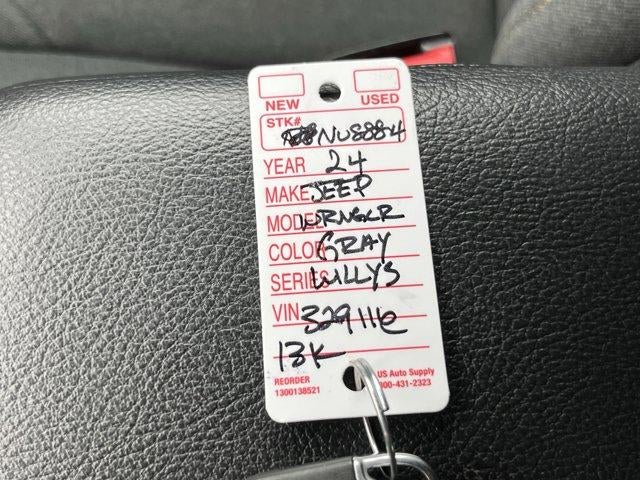 NEW USED
STK#
NU8884
YEAR 24
MAKE JEEP
MODEL WRNGLR
COLOR GRAY
SERIES WILLYS
VIN 329116
13K
REORDER US Auto Supply
1300138521 800-431-2323